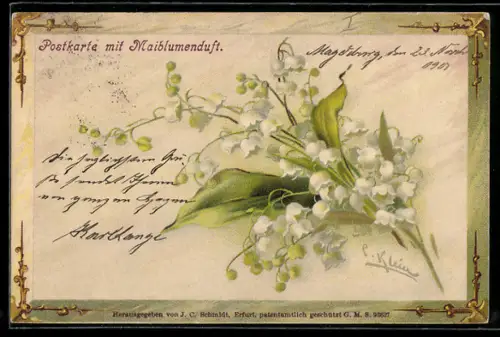 Postkarte mit Maiblumenduft.
Magdeburg, den 23. 
1901
Die herzlichsten Grü-
ße sendet Ihnen
von ganzem Herzen
C. Klein
Herausgegeben von J. C. Schmidt, Erfurt, patentamtlich geschützt G. M. S.